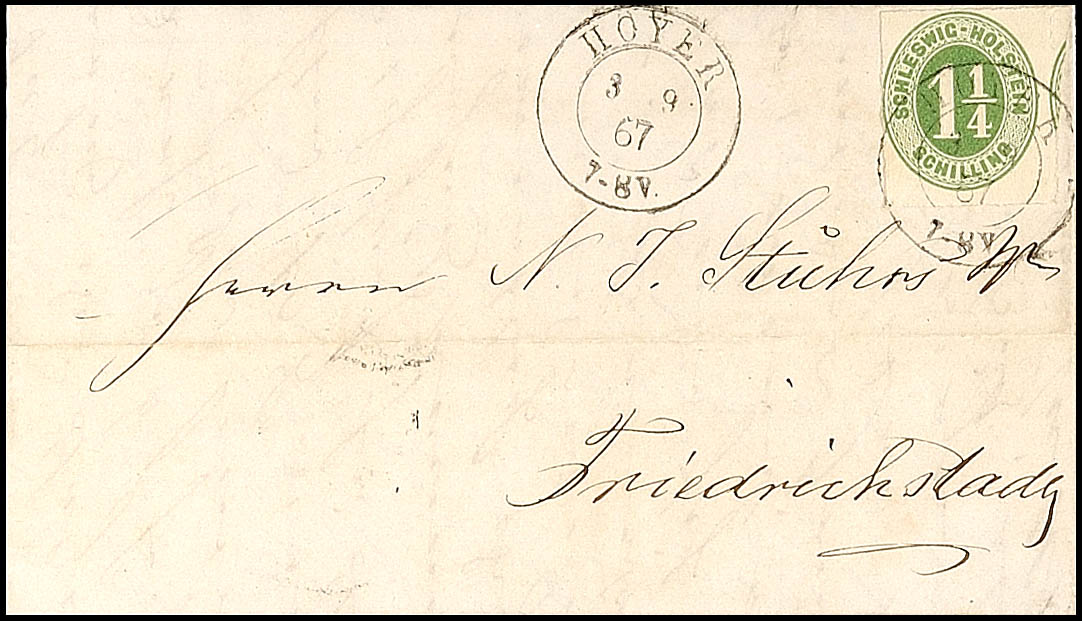 HOYER
3 9
67
7-8 V.
SCHLESWIG-HOLSTEIN
1 1/4
SCHILLING
67
7-8 V.
Herrn N. J. Stuhrs
Friedrichstadt